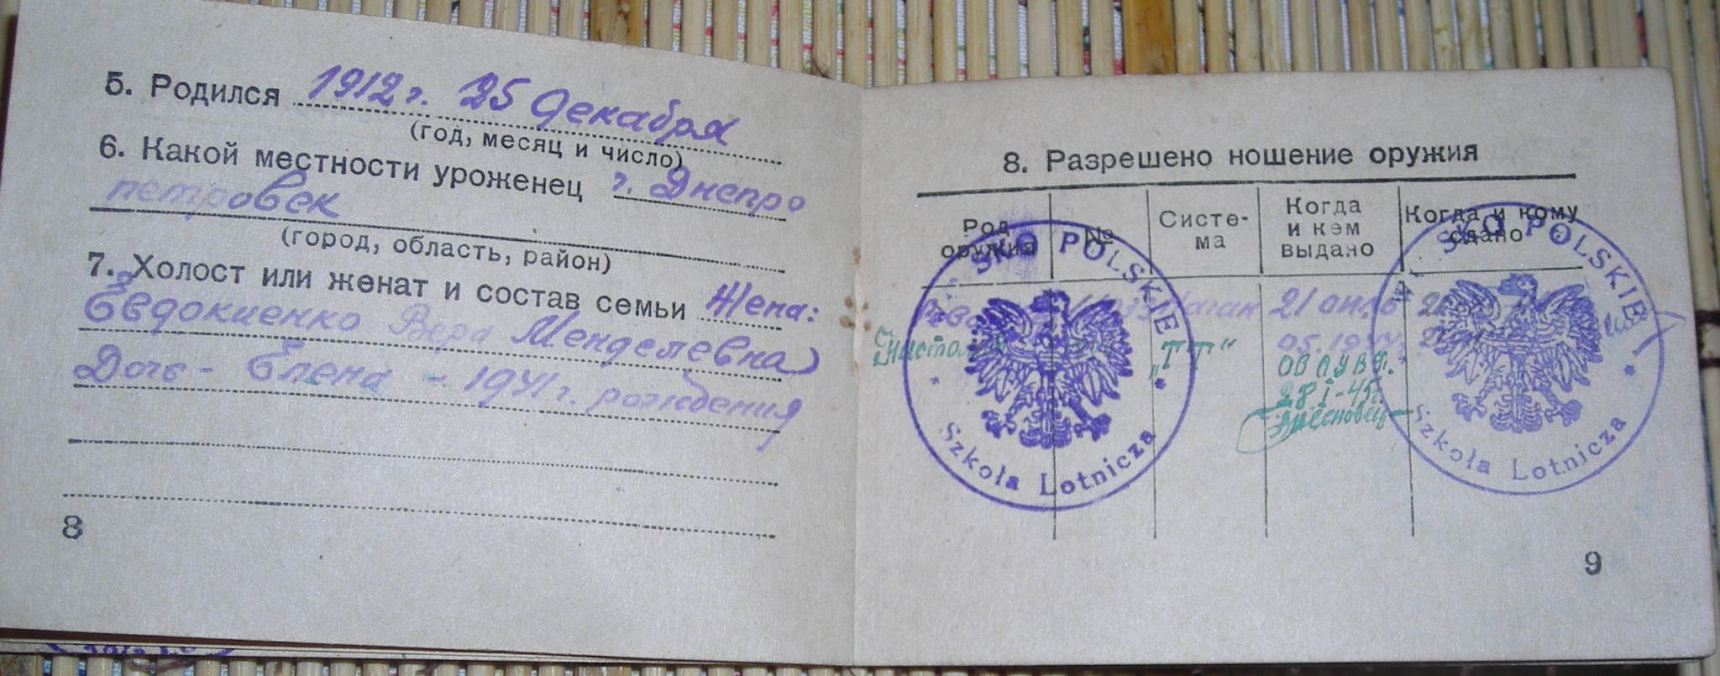 5. Родился 1912 г. 25 Декабря
(год, месяц и число)
6. Какой местности уроженец г. Днепро
петровск
(город, область, район)
7. Холост или женат и состав семьи Жена:
Евдокиенко Вера Менделевна
Дочь - Елена - 1941 г. рождения
8
8. Разрешено ношение оружия
Род оружия
№
Систе-
ма
Когда
и кем
выдано
Когда и кому
сдано
Наган 21
"ТТ"
28 I-45г.
SKO POLSKIE
Szkoła Lotnicza
SKO POLSKIE
Szkoła Lotnicza
9